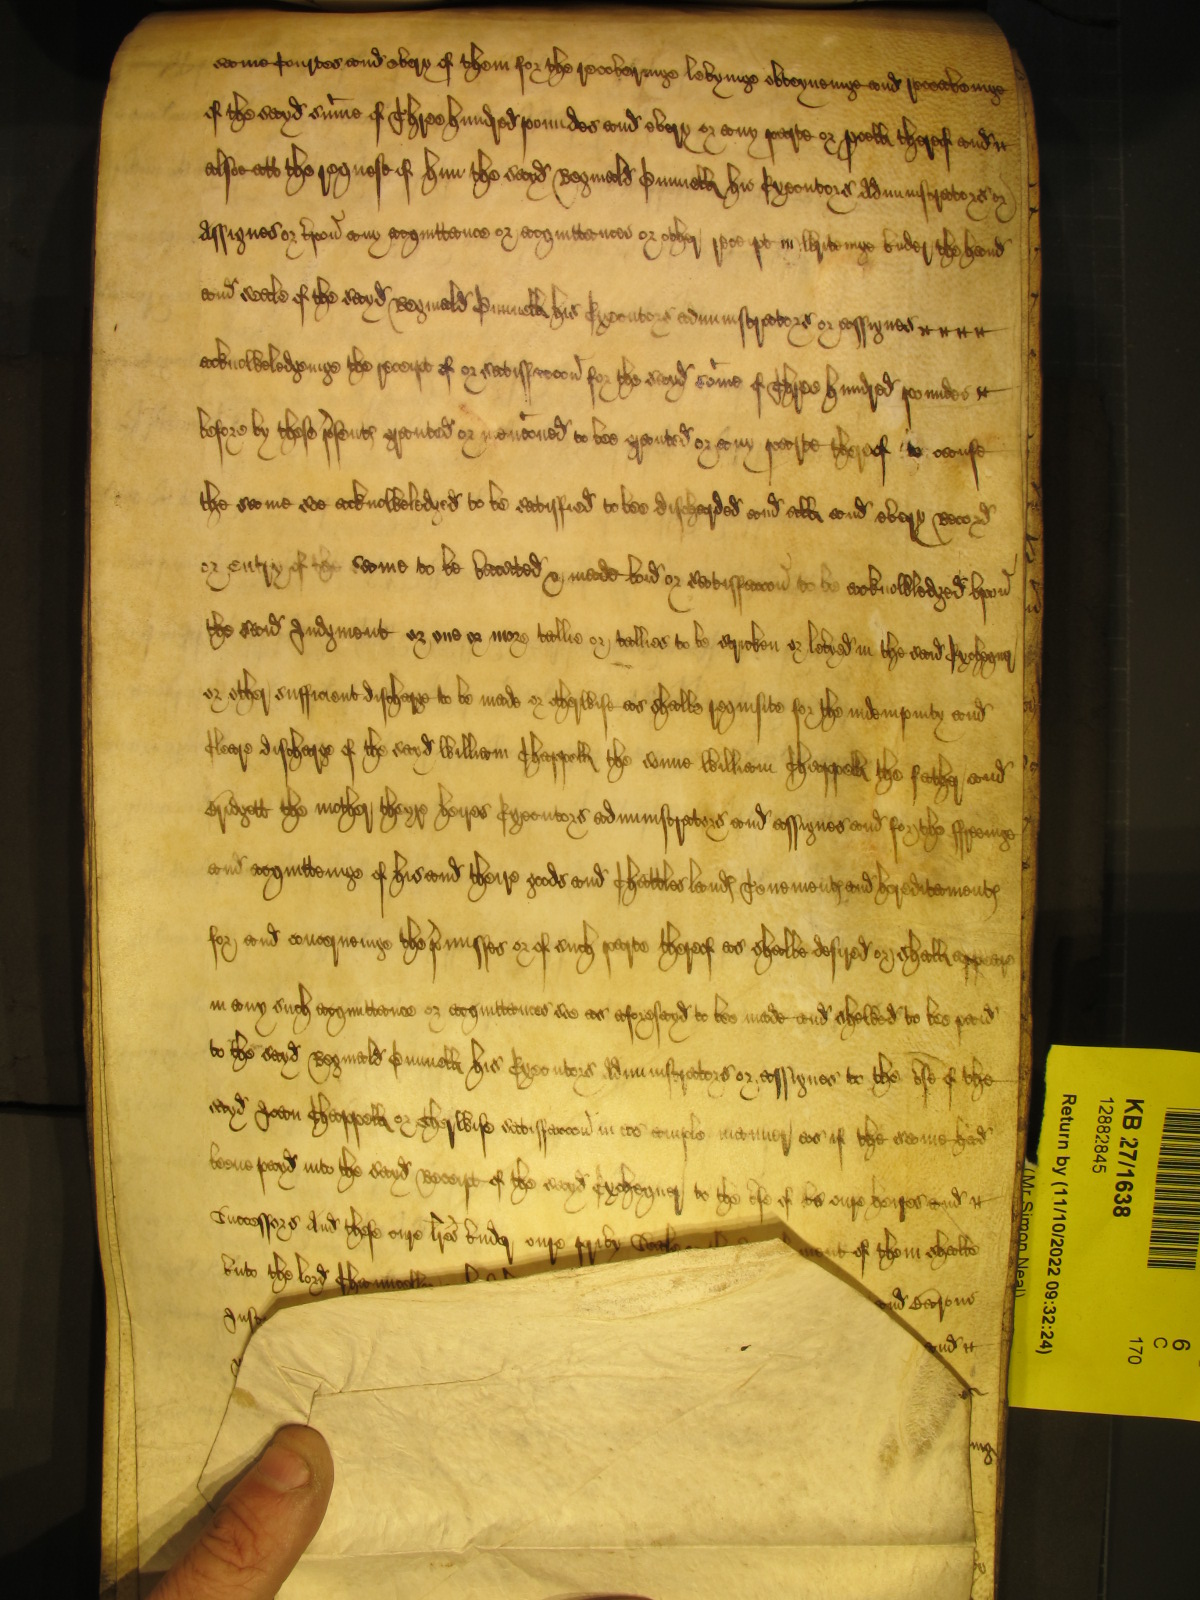 same Courtes and every of them for the recoveringe levyinge obteyneinge and receaveinge
of the sayd sume of Three hundred poundes and every or any parte or pcell thereof and
alsoe att the request of him the sayd Reginald Pinnell his Executors Administrators or
Assignes or upon any acquittance or acquittances or other receipt in Writeinge under the hand
and seale of the sayd Reginald Pinnell his Executors administrators or assignes
acknowledgeinge the receipt of or satisfaccon for the sayd some of Three hundred poundes
before by these psents graunted or mencioned to bee graunted or any parte thereof to cause
the same soe acknowledged to be satisfied to bee discharged and all and every Record
or Entry of the same to be vacated or made void or satisfaccon to be acknowledged upon
the said Judgment or one or more tallie or tallies to be stricken or levyed in the said Exchequer
or other sufficient discharge to be made or otherwise as shalbe requisite for the indempnity and
Cleare discharge of the sayd William Chappell the sonne William Chappell the father and
Bridgett the mother theyre heires Executors administrators and assignes and for the ffreeinge
and acquitteinge of his and theire goods and Chattles lands Tenements and hereditaments
for and concerneinge the pmisses or of such parte thereof as shalbe desired or shall appeare
in any such acquittance or acquittances soe as aforesayd to bee made and shewed to bee paid
to the sayd Reginald Pinnell his Executors Administrators or assignes to the use of the
sayd Joan Chappell or otherwise satisfaccon in as ample manner as if the same had
beene payd into the sayd Receipt of the sayd Exchequer to the use of us oure heires and
Successors And these oure lres under oure privy Seale ment of them shalbe
unto the lord Chauncellor
and Barons
and